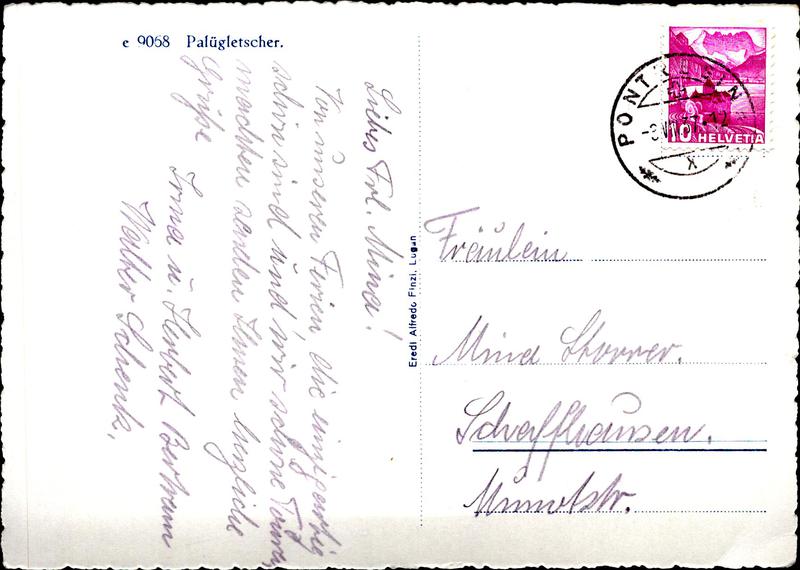 e 9068 Palügletscher.
Liebes Frl. Mina!
Von unseren Ferien, die einzigartig
schön sind und wir schöne Touren
machten senden Ihnen herzliche
Grüße
Irma u. Herbert Bertram
Walter Schenk.
Eredi Alfredo Finzi, Lugan
PONTRESINA
-8.VII.37-12
X
10 HELVETIA
Fräulein
Mina Storrer.
Schaffhausen.
Munotstr.